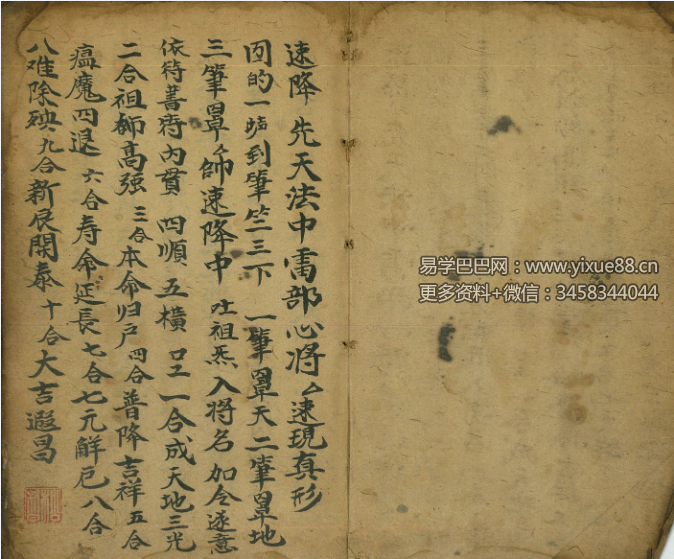 速降 先天法中雷部心将々速現真形
的一声到筆竺三下 一筆罩天二筆罩地
三筆罩々帥速降中 吐祖炁入将名 加令遂意
依符書符内貫 四順 五横 口工 一合成天地三光
二合祖師高强 三合本命归户 四合普降吉祥 五合
瘟魔四退 六合寿命延長 七合七元解厄 八合
八难除殃 九合新辰開泰 十合大吉遐昌
易学巴巴网：www.yixue88.cn
更多资料+微信：3458344044